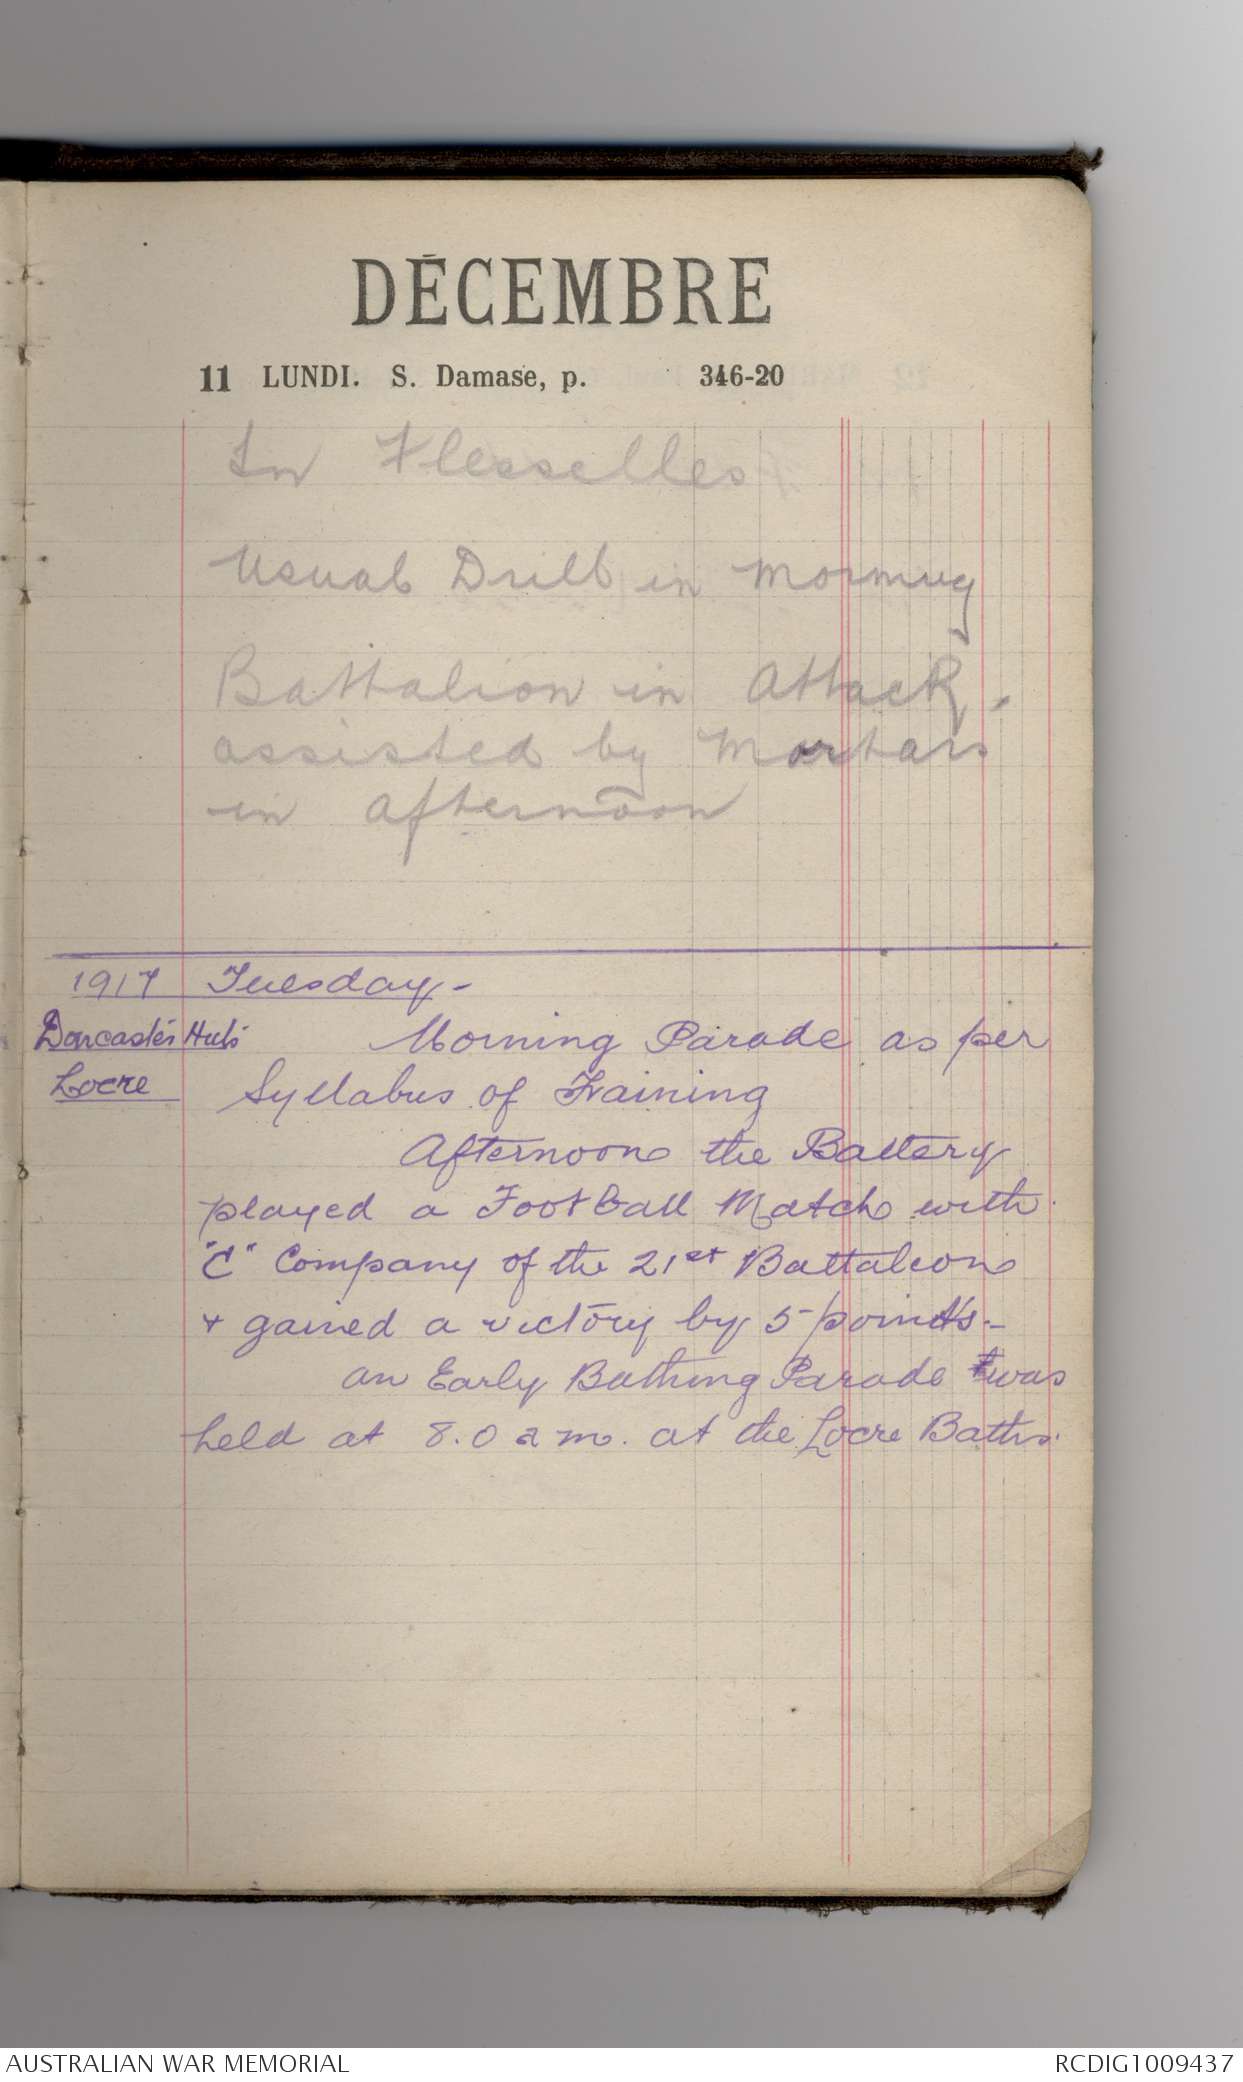 DÉCEMBRE
11 LUNDI. S. Damase, p. 346-20
In Flesselles
Usual Drill in morning
Battalion in Attack,
assisted by Mortars
in afternoon
1917 Tuesday -
Doncaster Huts Morning Parade as per
Locre Syllabus of Training
Afternoon the Battery
played a Football Match with
"C" Company of the 21st Battalion
+ gained a victory by 5 points -
an Early Bathing Parade was
held at 8.0 am. at the Locre Baths.
AUSTRALIAN WAR MEMORIAL RCDIG1009437